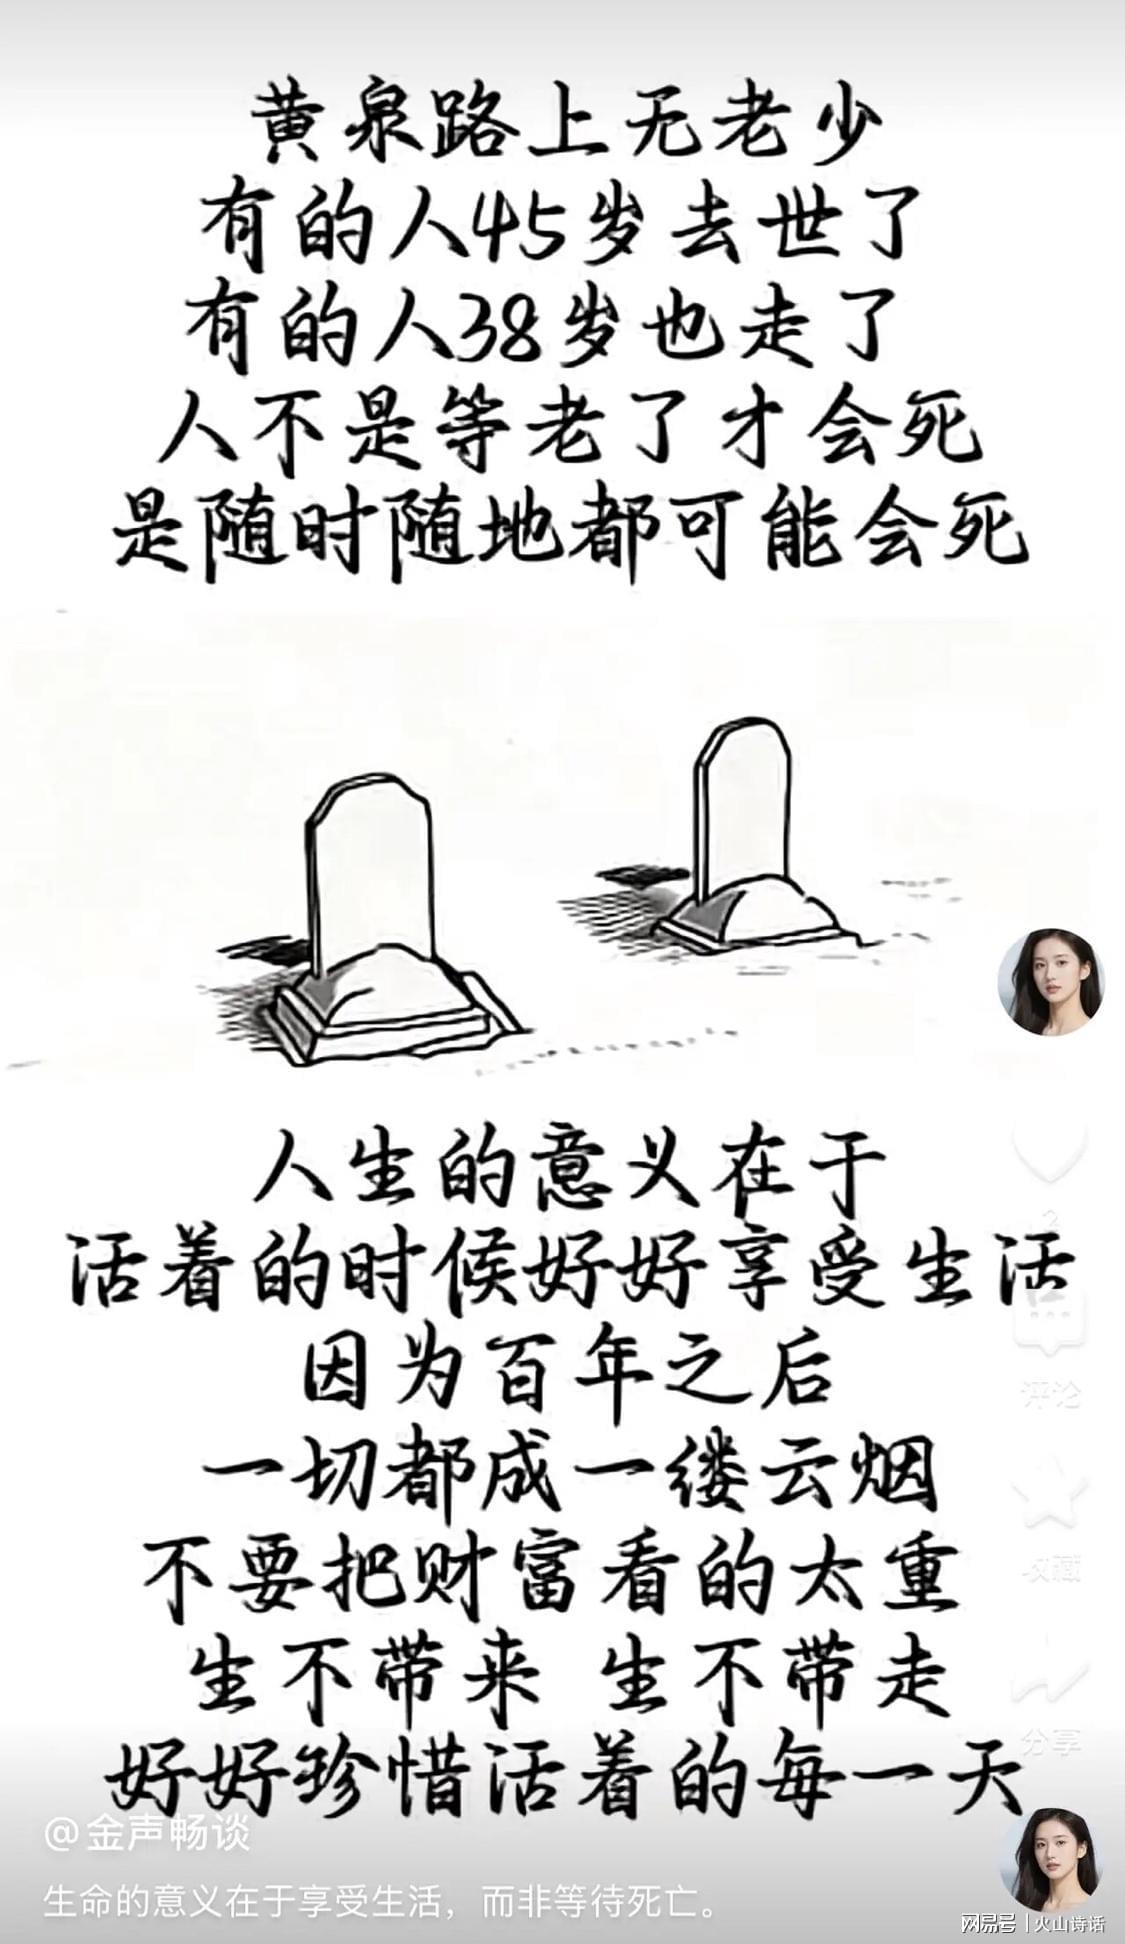 黄泉路上无老少
有的人45岁去世了
有的人38岁也走了
人不是等老了才会死
是随时随地都可能会死
人生的意义在于
活着的时候好好享受生活
因为百年之后
一切都成一缕云烟
不要把财富看的太重
生不带来 生不带走
好好珍惜活着的每一天
2
评论
收藏
分享
@金声畅谈
生命的意义在于享受生活，而非等待死亡。
网易号 | 火山诗话